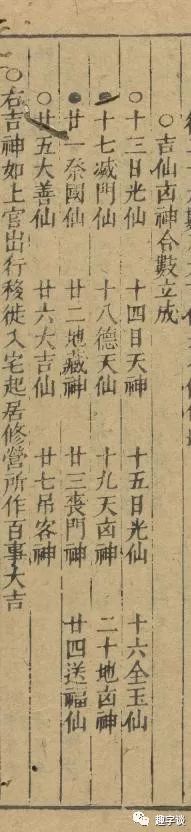 ○吉仙㐫神合數立成
○十三日光仙 十四日天神 十五日光仙 十六全玉仙
十七滅門仙 十八德天仙 十九天㐫神 二十地㐫神
●廿一祭國仙 廿二地藏神 廿三喪門神 廿四送福仙
○廿五大善仙 廿六大吉仙 廿七吊客神
○右吉神如上官出行移徙入宅起居修營所作百事大吉
趣字谈